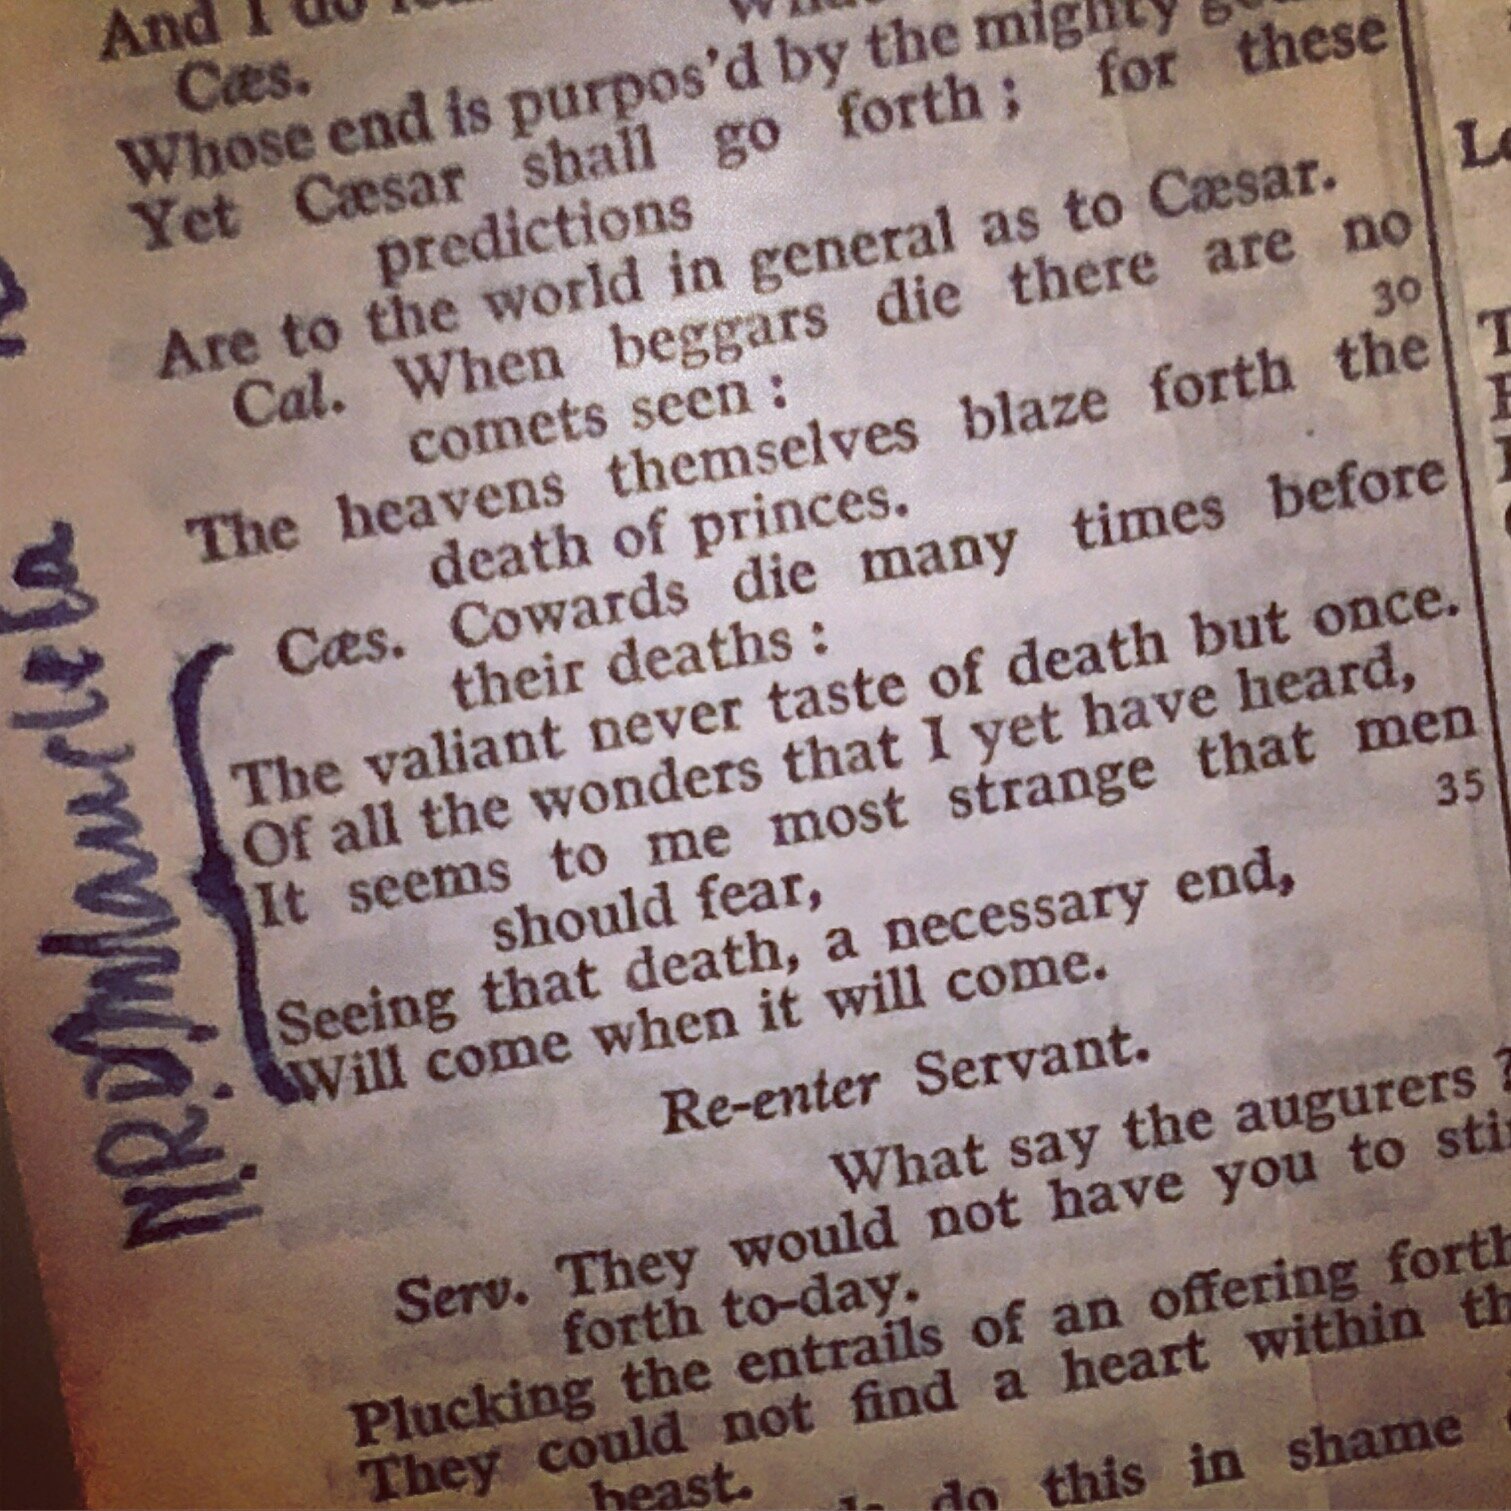 And I do
Cæs.
Whose end is purpos'd by the mighty
Yet Cæsar shall go forth ; for these
predictions
Are to the world in general as to Cæsar.
Cal. When beggars die there are no
comets seen : 30
The heavens themselves blaze forth the
death of princes.
Cæs. Cowards die many times before
their deaths :
The valiant never taste of death but once.
Of all the wonders that I yet have heard,
It seems to me most strange that men
should fear, 35
Seeing that death, a necessary end,
Will come when it will come.
Re-enter Servant.
What say the augurers ?
Serv. They would not have you to
forth to-day.
Plucking the entrails of an offering forth
They could not find a heart within
beast.
do this in shame
N.R.D. Mandela